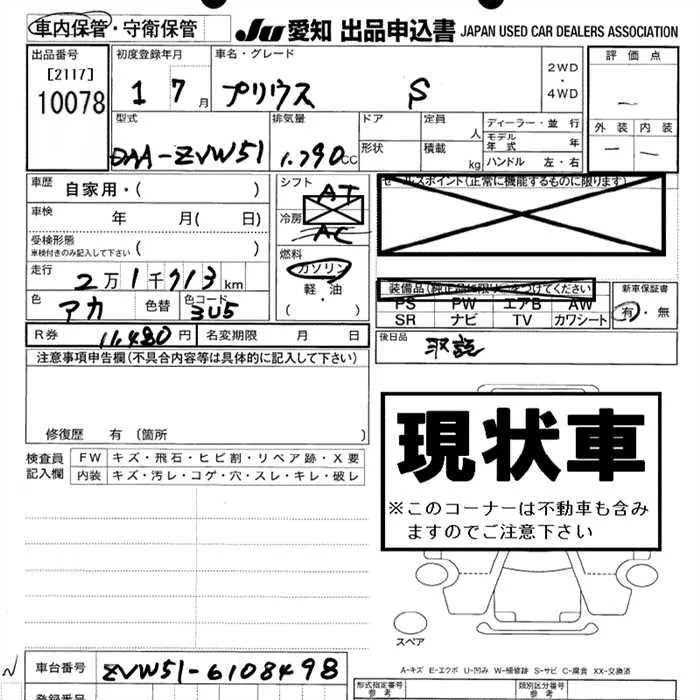 車内保管・守衛保管 Ju 愛知 出品申込書 JAPAN USED CAR DEALERS ASSOCIATION
出品番号 初度登録年月 車名・グレード 2WD・4WD 評価点
[2117]
10078 1 7月 プリウス S
型式 排気量 ドア 定員 人 ディーラー・並行 外装 内装
DAA-ZVW51 1.790CC 形状 積載 kg モデル年式 年
ハンドル 左・右
車歴 自家用・( ) シフト AT セールスポイント(正常に機能するものに限ります)
車検 年 月( 日) 冷房 AC
受検形態 車検付きのみ記入して下さい ( ) 燃料
走行 2万1千713km ガソリン 装備品(純正品に限り○をつけてください) 新車保証書
色 アカ 色替 色コード 3U5 軽・油 ( ) PS PW エアB AW 有・無
SR ナビ TV カワシート
R券 11,480円 名変期限 月 日 後日品 取説
注意事項申告欄(不具合内容等は具体的に記入して下さい)
修復歴 有 (箇所 )
現状車
※このコーナーは不動車も含み
ますのでご注意下さい
検査員記入欄 FW キズ・飛石・ヒビ割・リペア跡・X要
内装 キズ・汚レ・コゲ・穴・スレ・キレ・破レ
スペア
A-キズ E-エクボ U-凹み W-補修跡 S-サビ C-腐食 XX-交換済
車台番号 ZVW51-6108498
型式指定番号 参考 類別区分番号 参考
登録番号